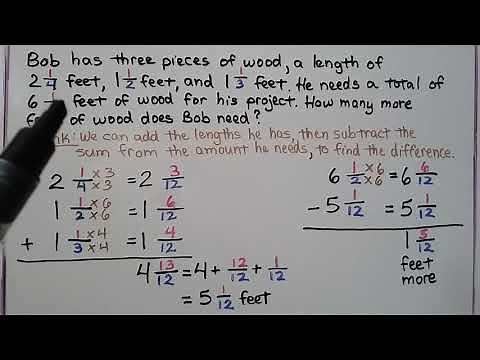 Bob has three pieces of wood, a length of
2 1/4 feet, 1 1/2 feet, and 1 1/3 feet. He needs a total of
6 feet of wood for his project. How many more
of wood does Bob need?
We can add the lengths he has, then subtract the
sum from the amount he needs, to find the difference.
2 1/4 ×3/×3 = 2 3/12
1 1/2 ×6/×6 = 1 6/12
+ 1 1/3 ×4/×4 = 1 4/12
4 13/12 = 4 + 12/12 + 1/12
= 5 1/12 feet
6 1/2 ×6/×6 = 6 6/12
- 5 1/12 = 5 1/12
1 5/12
feet
more